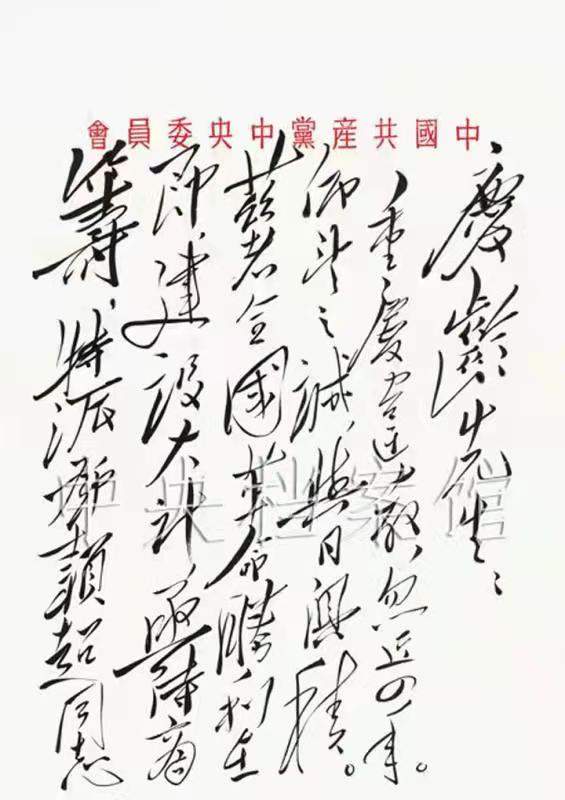 中國共産黨中央委員會
慶齡先生：
重慶違教，忽近四年。
仰望之誠，與日俱積。
茲者全國革命勝利在
即，建設大計，亟待商
籌，特派鄧穎超同志
中央档案馆